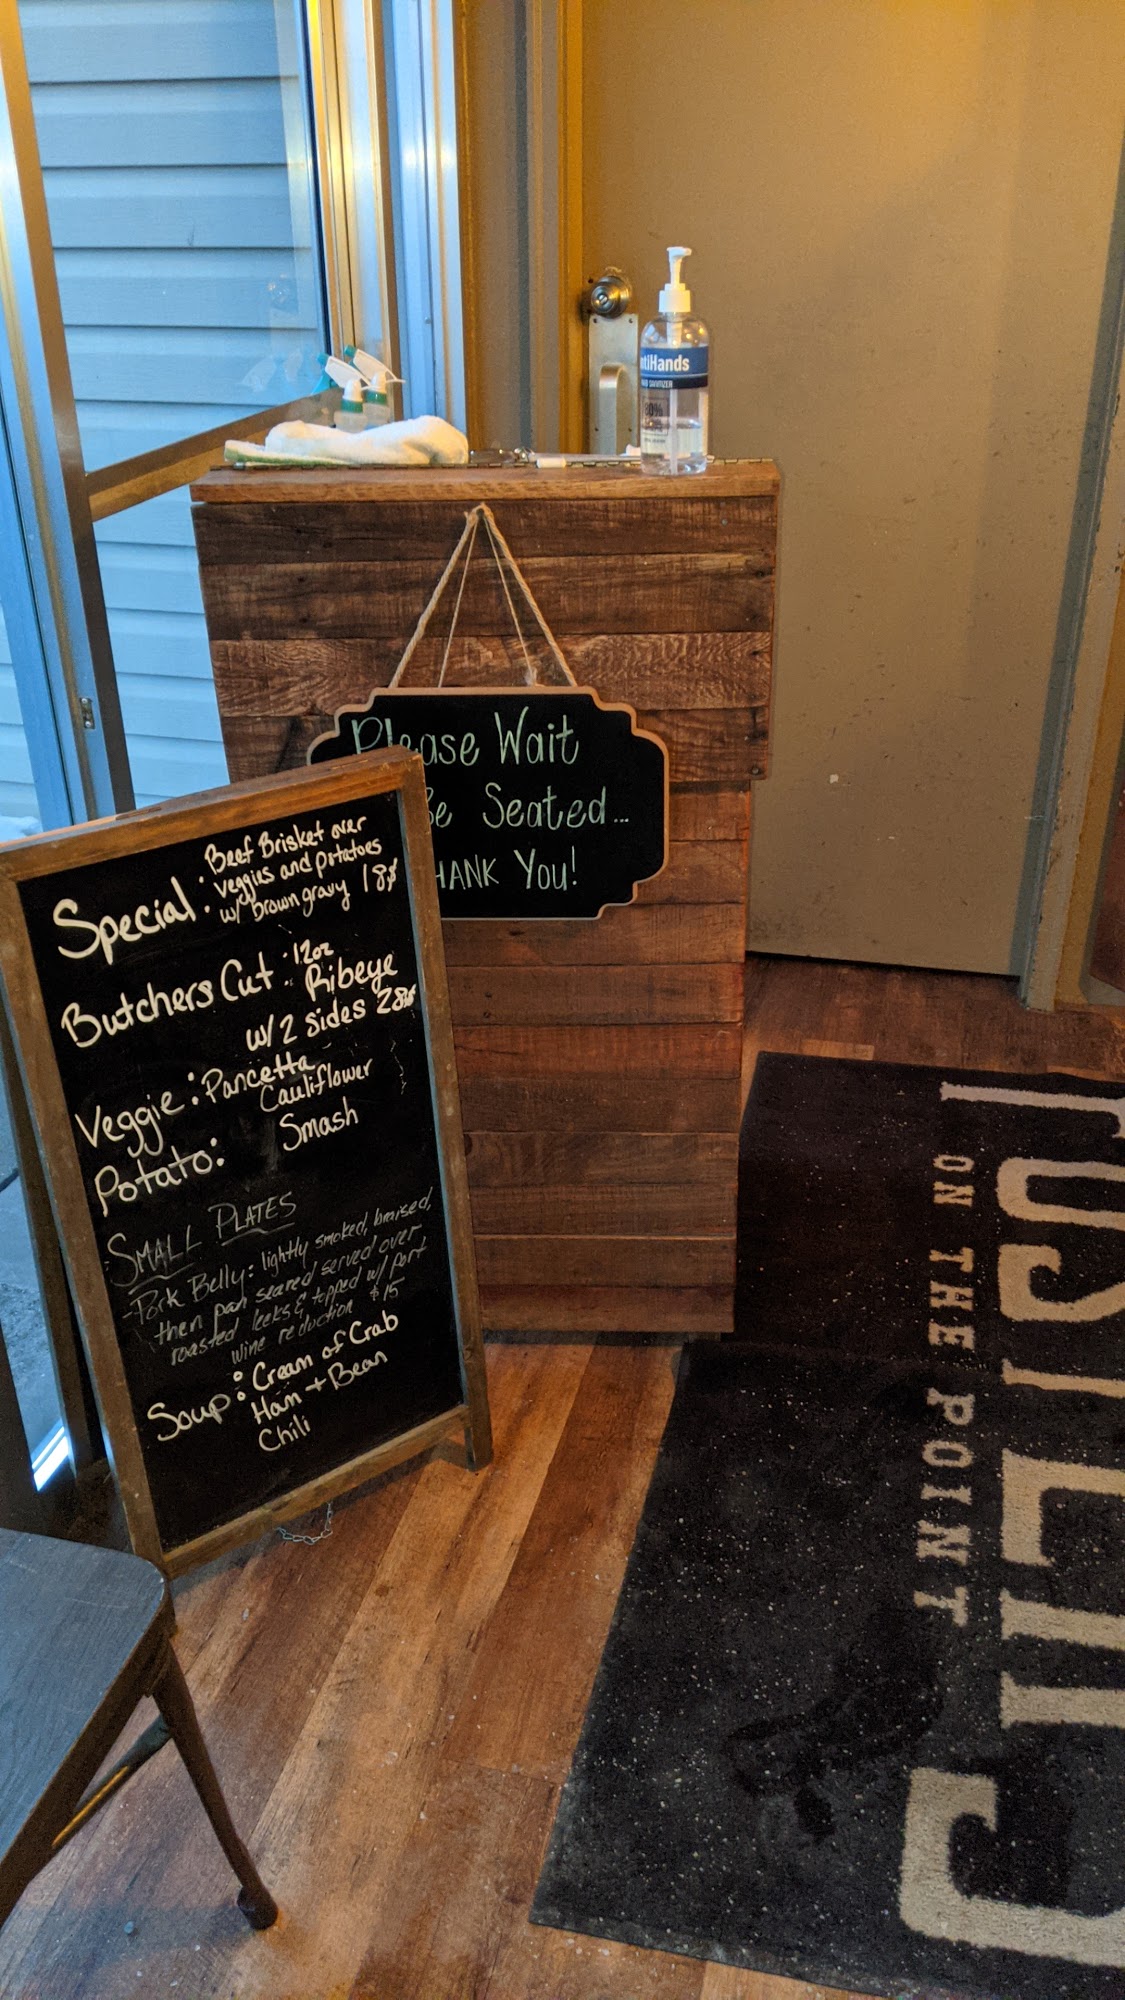 ntiHands
HAND SANITIZER
80%
Please Wait
Be Seated...
HANK You!
Special: Beef Brisket over
veggies and potatoes
w/ brown gravy 18$
Butchers Cut: 12oz
Ribeye
w/ 2 sides 28$
Veggie: Pancetta
Cauliflower
Potato: Smash
SMALL PLATES
-Pork Belly: lightly smoked, braised,
then pan seared served over
roasted leeks & topped w/ port
wine reduction $15
Soup: Cream of Crab
Ham + Bean
Chili
ON THE POINT